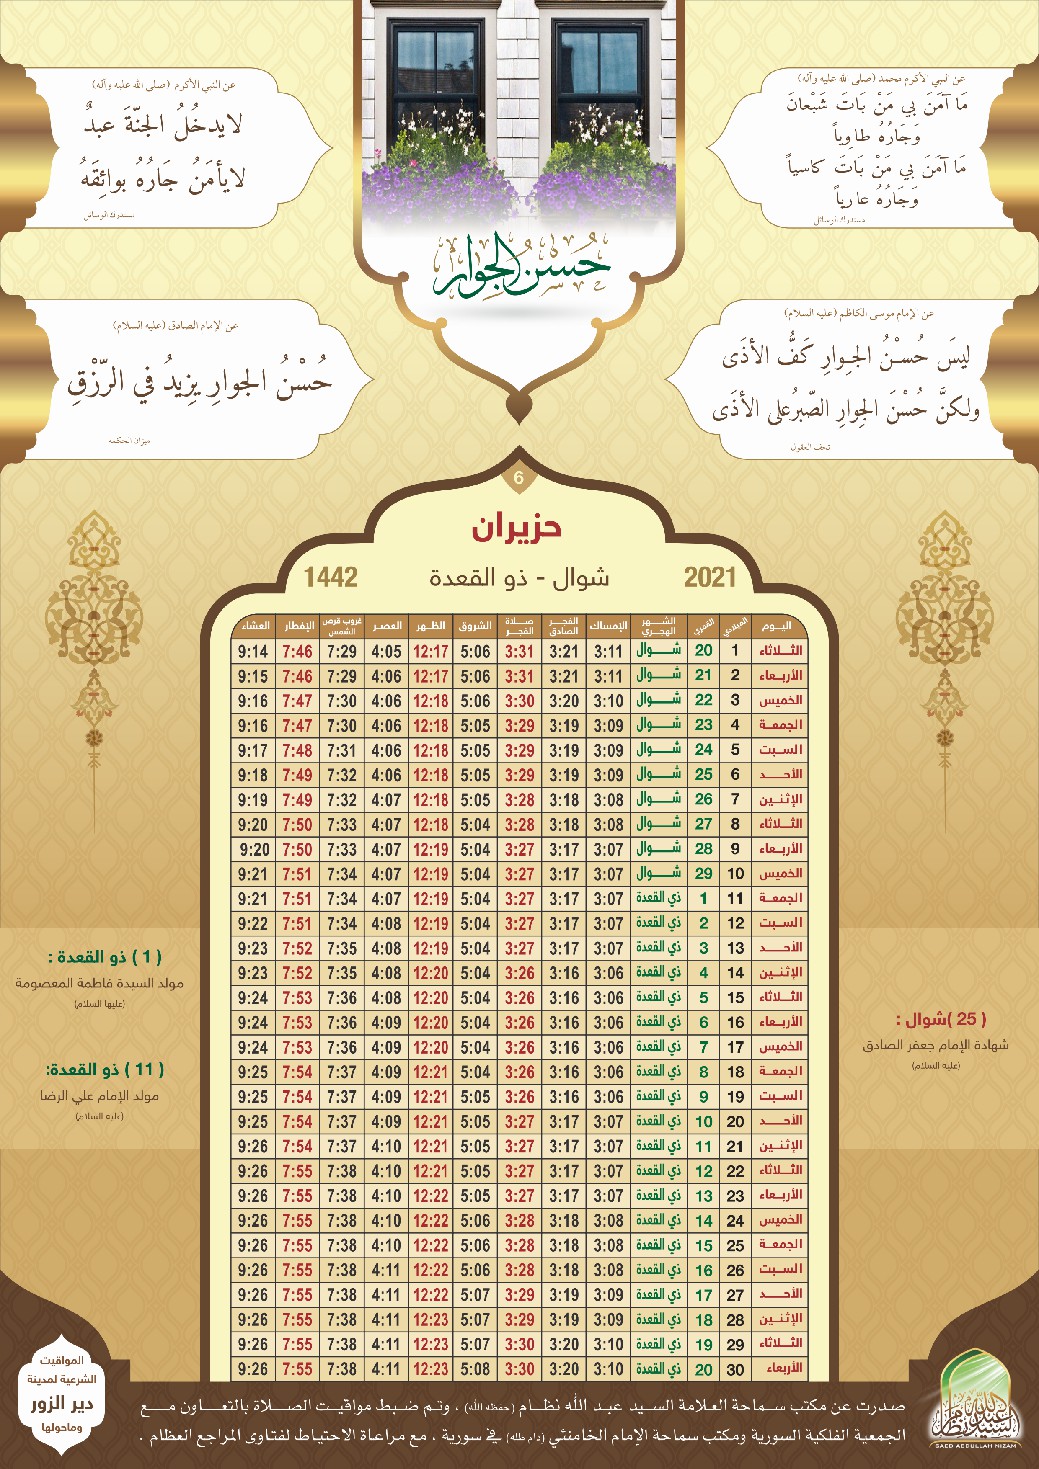 عن النبي الأكرم محمد (صلى الله عليه وآله)
مَا آمَنَ بي مَنْ بَاتَ شَبْعانَ
وَجَارُهُ طاوِياً
مَا آمَنَ بي مَنْ بَاتَ كاسياً
وَجَارُهُ عارياً
مستدرك الوسائل
عن النبي الأكرم (صلى الله عليه وآله)
لايدخُلُ الجنّةَ عبدٌ
لايأمَنُ جَارُهُ بوائِقَهُ
مستدرك الوسائل
حُسنُ الجِوار
عن الإمام موسى الكاظم (عليه السلام)
ليسَ حُسْنُ الجِوارِ كَفُّ الأذَى
ولكنَّ حُسْنَ الجِوارِ الصّبرُعلى الأذَى
تحف العقول
عن الإمام الصادق (عليه السلام)
حُسْنُ الجوارِ يزيدُ في الرّزْقِ
ميزان الحكمه
6
حزيران
2021 شوال - ذو القعدة 1442
اليوم الميلادي القمري الشهر الهجري الإمساك الفجر الصادق صلاة الفجر الشروق الظهر العصر غروب قرص الشمس الإفطار العشاء
الثلاثاء 1 20 شوال 3:11 3:21 3:31 5:06 12:17 4:05 7:29 7:46 9:14
الأربعاء 2 21 شوال 3:11 3:21 3:31 5:06 12:17 4:06 7:29 7:46 9:15
الخميس 3 22 شوال 3:10 3:20 3:30 5:06 12:18 4:06 7:30 7:47 9:16
الجمعة 4 23 شوال 3:09 3:19 3:29 5:05 12:18 4:06 7:30 7:47 9:16
السبت 5 24 شوال 3:09 3:19 3:29 5:05 12:18 4:06 7:31 7:48 9:17
الأحد 6 25 شوال 3:09 3:19 3:29 5:05 12:18 4:06 7:32 7:49 9:18
الإثنين 7 26 شوال 3:08 3:18 3:28 5:05 12:18 4:07 7:32 7:49 9:19
الثلاثاء 8 27 شوال 3:08 3:18 3:28 5:04 12:18 4:07 7:33 7:50 9:20
الأربعاء 9 28 شوال 3:07 3:17 3:27 5:04 12:19 4:07 7:33 7:50 9:20
الخميس 10 29 شوال 3:07 3:17 3:27 5:04 12:19 4:07 7:34 7:51 9:21
الجمعة 11 1 ذي القعدة 3:07 3:17 3:27 5:04 12:19 4:07 7:34 7:51 9:21
السبت 12 2 ذي القعدة 3:07 3:17 3:27 5:04 12:19 4:08 7:34 7:51 9:22
الأحد 13 3 ذي القعدة 3:07 3:17 3:27 5:04 12:19 4:08 7:35 7:52 9:23
الإثنين 14 4 ذي القعدة 3:06 3:16 3:26 5:04 12:20 4:08 7:35 7:52 9:23
الثلاثاء 15 5 ذي القعدة 3:06 3:16 3:26 5:04 12:20 4:08 7:36 7:53 9:24
الأربعاء 16 6 ذي القعدة 3:06 3:16 3:26 5:04 12:20 4:08 7:36 7:53 9:24
الخميس 17 7 ذي القعدة 3:06 3:16 3:26 5:04 12:20 4:09 7:36 7:53 9:24
الجمعة 18 8 ذي القعدة 3:06 3:16 3:26 5:04 12:21 4:09 7:37 7:54 9:25
السبت 19 9 ذي القعدة 3:06 3:16 3:26 5:05 12:21 4:09 7:37 7:54 9:25
الأحد 20 10 ذي القعدة 3:07 3:17 3:27 5:05 12:21 4:09 7:37 7:54 9:25
الإثنين 21 11 ذي القعدة 3:07 3:17 3:27 5:05 12:21 4:10 7:37 7:54 9:26
الثلاثاء 22 12 ذي القعدة 3:07 3:17 3:27 5:05 12:21 4:10 7:38 7:55 9:26
الأربعاء 23 13 ذي القعدة 3:07 3:17 3:27 5:05 12:22 4:10 7:38 7:55 9:26
الخميس 24 14 ذي القعدة 3:08 3:18 3:28 5:06 12:22 4:10 7:38 7:55 9:26
الجمعة 25 15 ذي القعدة 3:08 3:18 3:28 5:06 12:22 4:10 7:38 7:55 9:26
السبت 26 16 ذي القعدة 3:08 3:18 3:28 5:06 12:22 4:11 7:38 7:55 9:26
الأحد 27 17 ذي القعدة 3:09 3:19 3:29 5:07 12:22 4:11 7:38 7:55 9:26
الإثنين 28 18 ذي القعدة 3:09 3:19 3:29 5:07 12:23 4:11 7:38 7:55 9:26
الثلاثاء 29 19 ذي القعدة 3:10 3:20 3:30 5:07 12:23 4:11 7:38 7:55 9:26
الأربعاء 30 20 ذي القعدة 3:10 3:20 3:30 5:08 12:23 4:11 7:38 7:55 9:26
( 25 )شوال :
شهادة الإمام جعفر الصادق
(عليه السلام)
( 1 ) ذو القعدة :
مولد السيدة فاطمة المعصومة
(عليها السلام)
( 11 ) ذو القعدة:
مولد الإمام علي الرضا
(عليه السلام)
المواقيت
الشرعية لمدينة
دير الزور
وماحولها
صدرت عن مكتب سماحة العلامة السيد عبد الله نظام (حفظه الله) ، وتم ضبط مواقيت الصلاة بالتعاون مع
الجمعية الفلكية السورية ومكتب سماحة الإمام الخامنئي (دام ظله) في سورية ، مع مراعاة الاحتياط لفتاوى المراجع العظام .
SAED ABDULLAH NIZAM